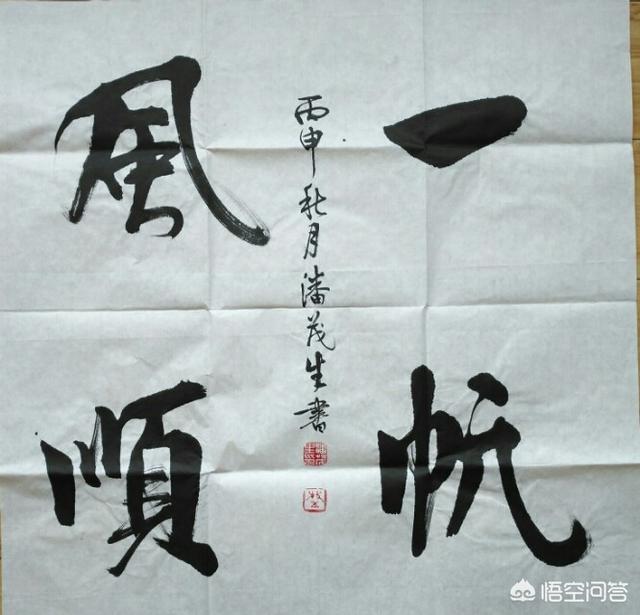 一帆
風順
丙申秋月潘茂生書
悟空问答